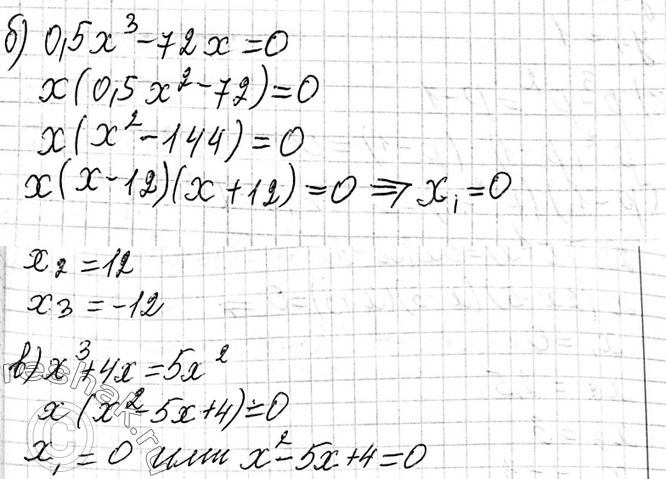 б) 0,5x³-72x=0
x(0,5x²-72)=0
x(x²-144)=0
x(x-12)(x+12)=0 ⇒ x₁=0
x₂=12
x₃=-12
в) x³+4x=5x²
x(x²-5x+4)=0
x₁=0 или x²-5x+4=0